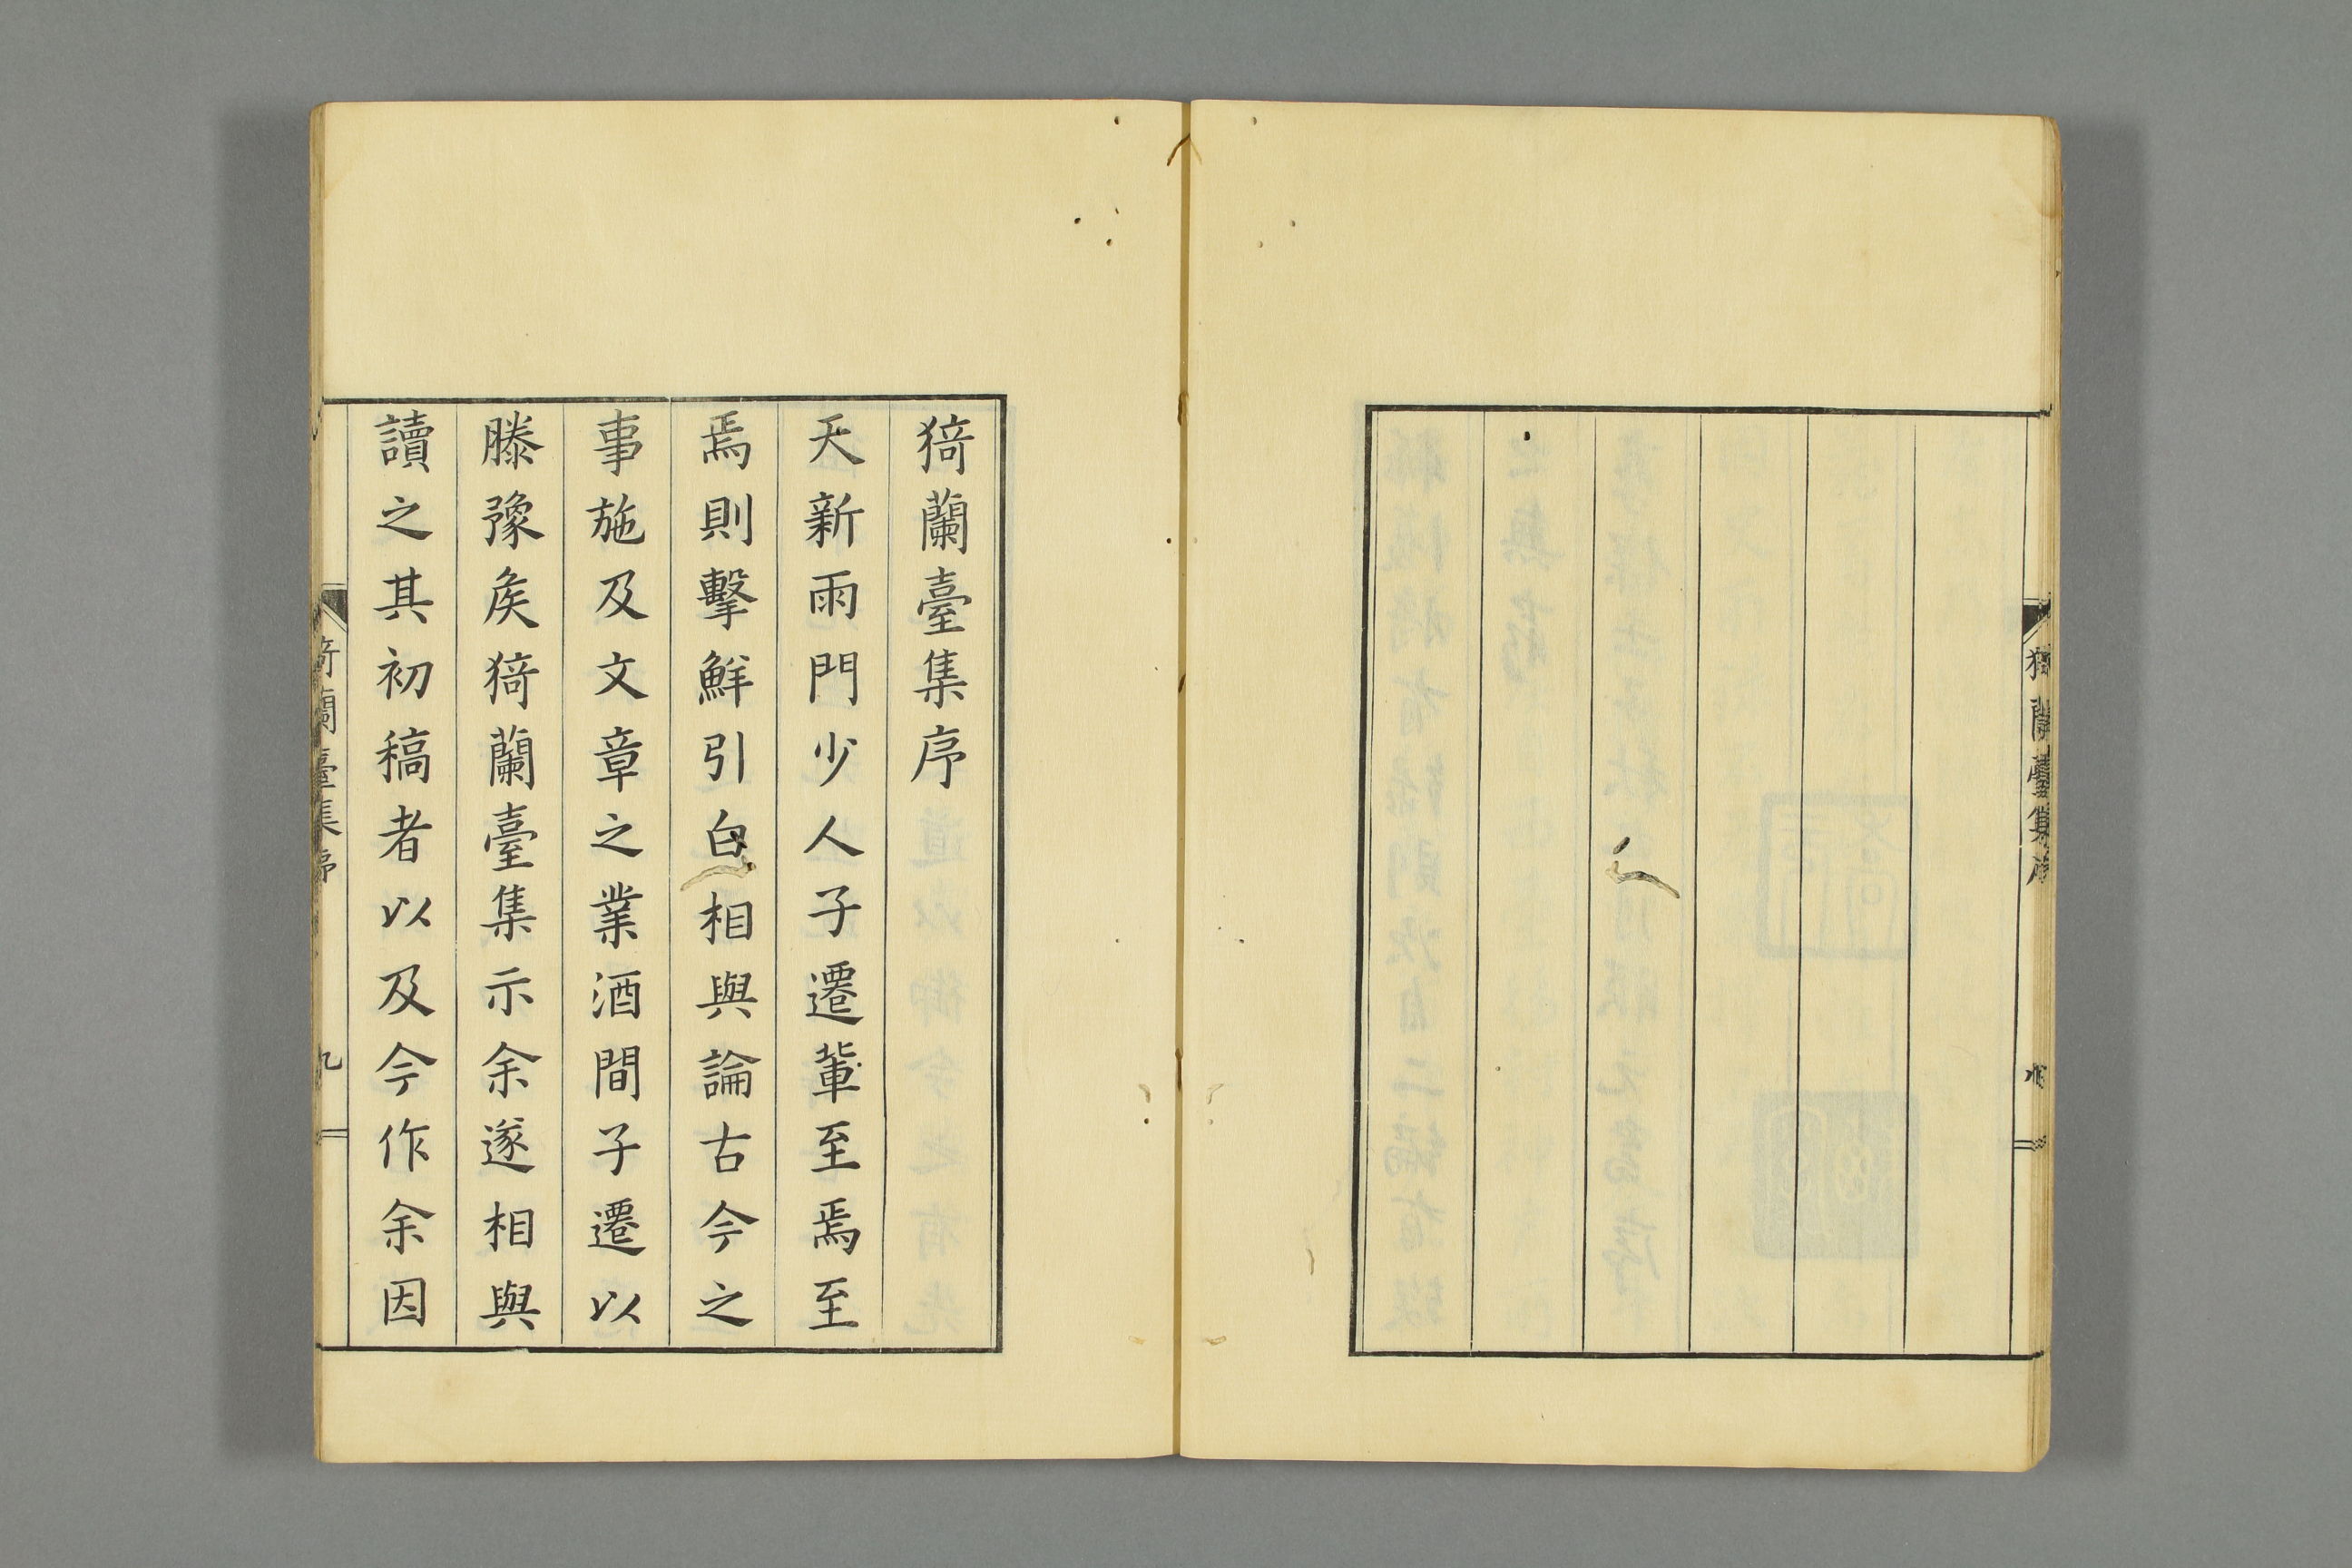 猗蘭臺集序
猗蘭臺集序
天新雨門少人子遷軰至焉至
焉則擊鮮引白相與論古今之
事施及文章之業酒間子遷以
滕豫矦猗蘭臺集示余遂相與
讀之其初稿者以及今作余因
猗蘭臺集序
九